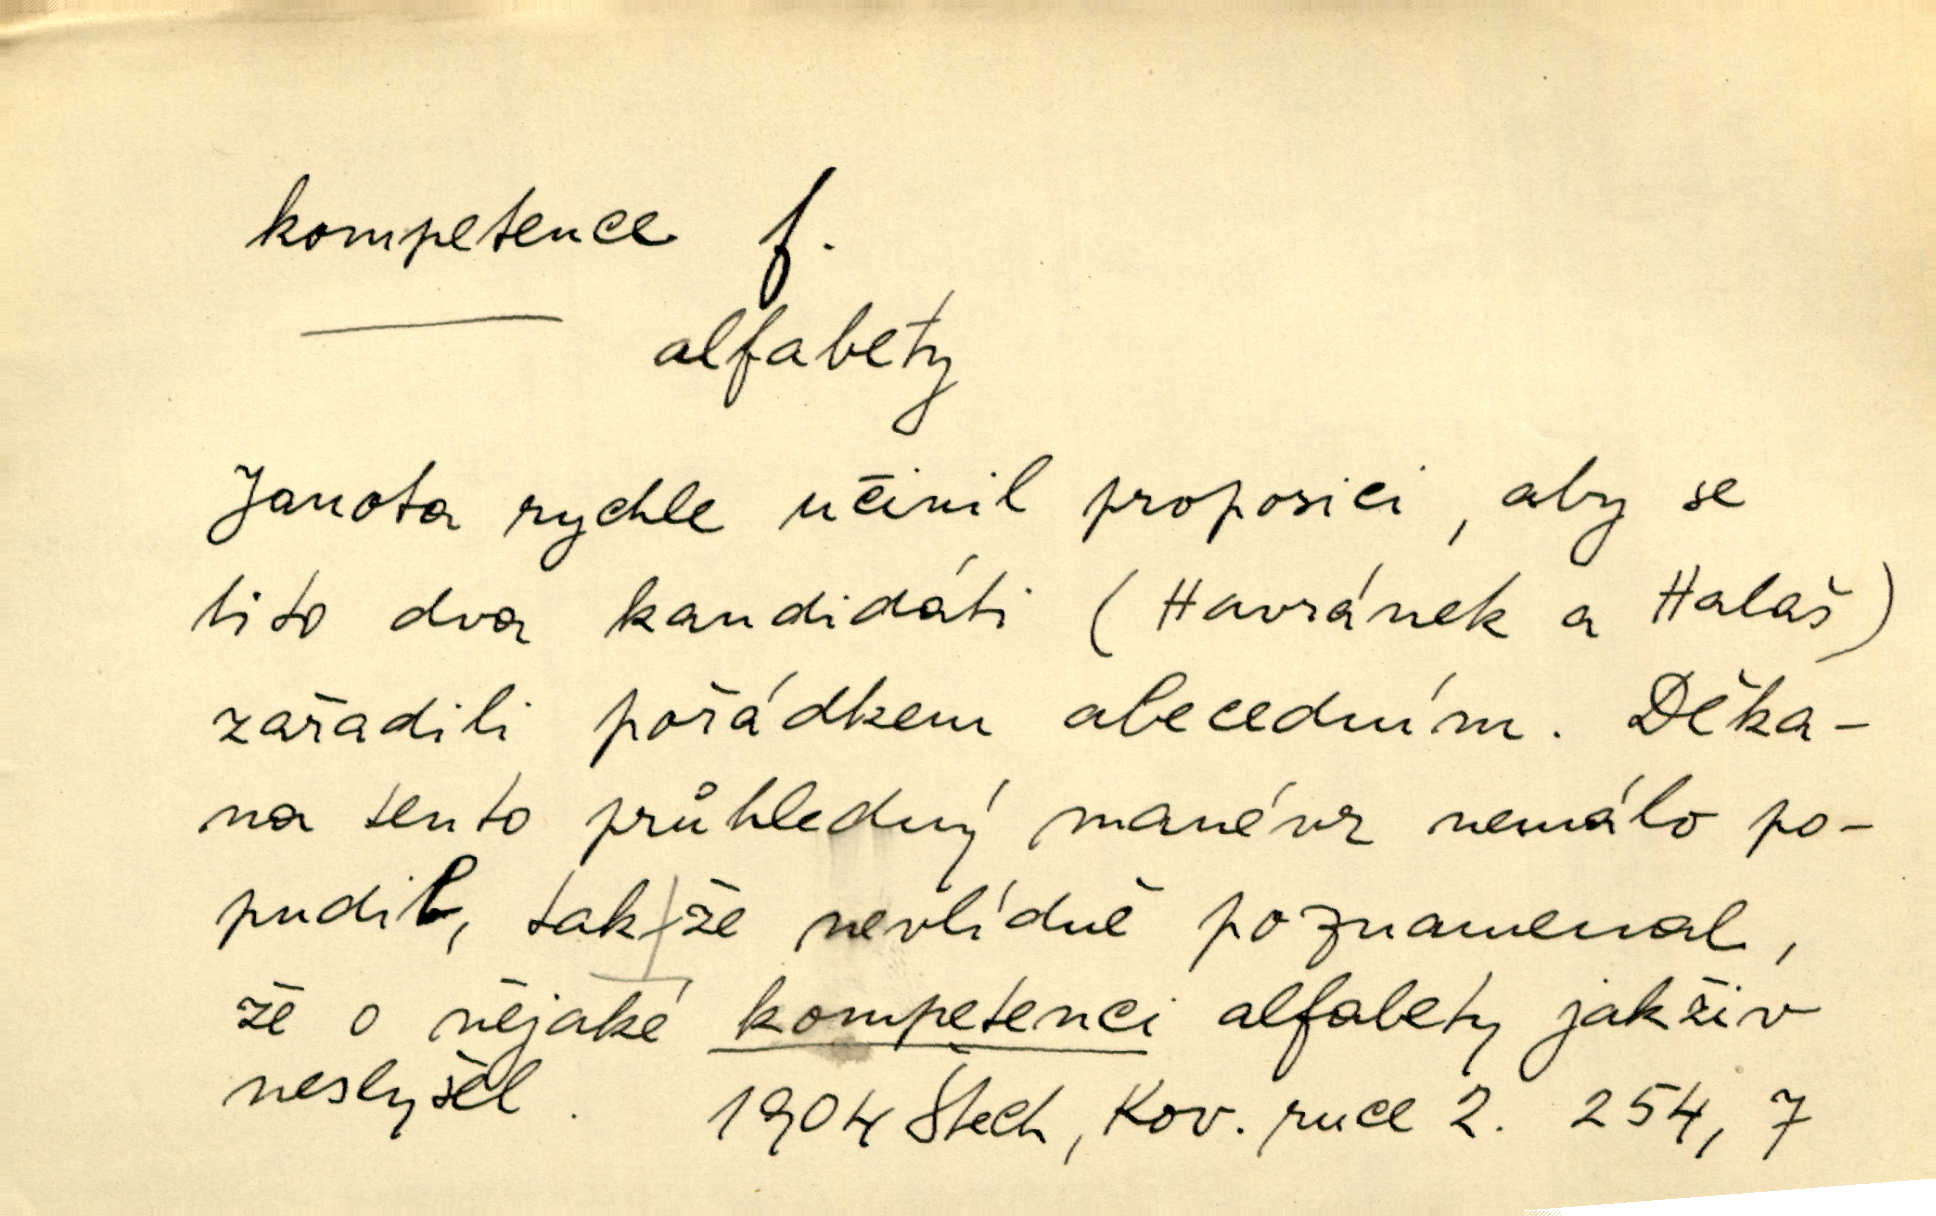 kompetence f.
alfabety
Janota rychle učinil proposici, aby se
tito dva kandidáti (Havránek a Halaš)
zařadili pořádkem abecedním. Děka-
na tento průhledný manévr nemálo po-
pudil, tak že nevlídně poznamenal,
že o nějaké kompetenci alfabety jakživ
neslyšel. 1904 Štech, Kov. ruce 2. 254, 7